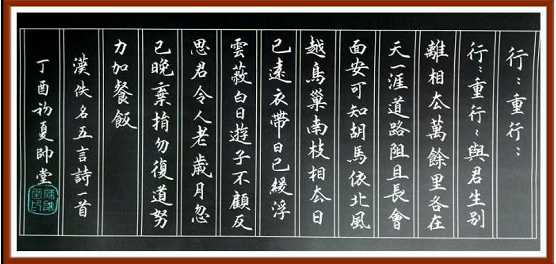 行〻重行〻
行〻重行〻與君生别
離相去萬餘里各在
天一涯道路阻且長會
面安可知胡馬依北風
越鳥巢南枝相去日
已遠衣帶日已緩浮
雲蔽白日遊子不顧反
思君令人老歲月忽
已晚棄捐勿復道努
力加餐飯
漢佚名五言詩一首
丁酉初夏帥堂